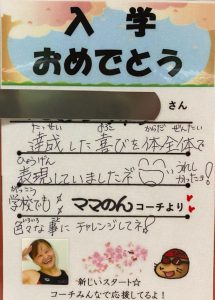 入学
おめでとう
さん
たっせい よろこ からだ ぜんたい
達成した喜びを体全体で
ひょうげん
表現していましたネ
うれし
かったョ!
がっこう
学校でも ママのん コーチより
いろいろ こと
色々な事に チャレンジしてネ!
新しいスタート☆
コーチみんなで応援してるよ!